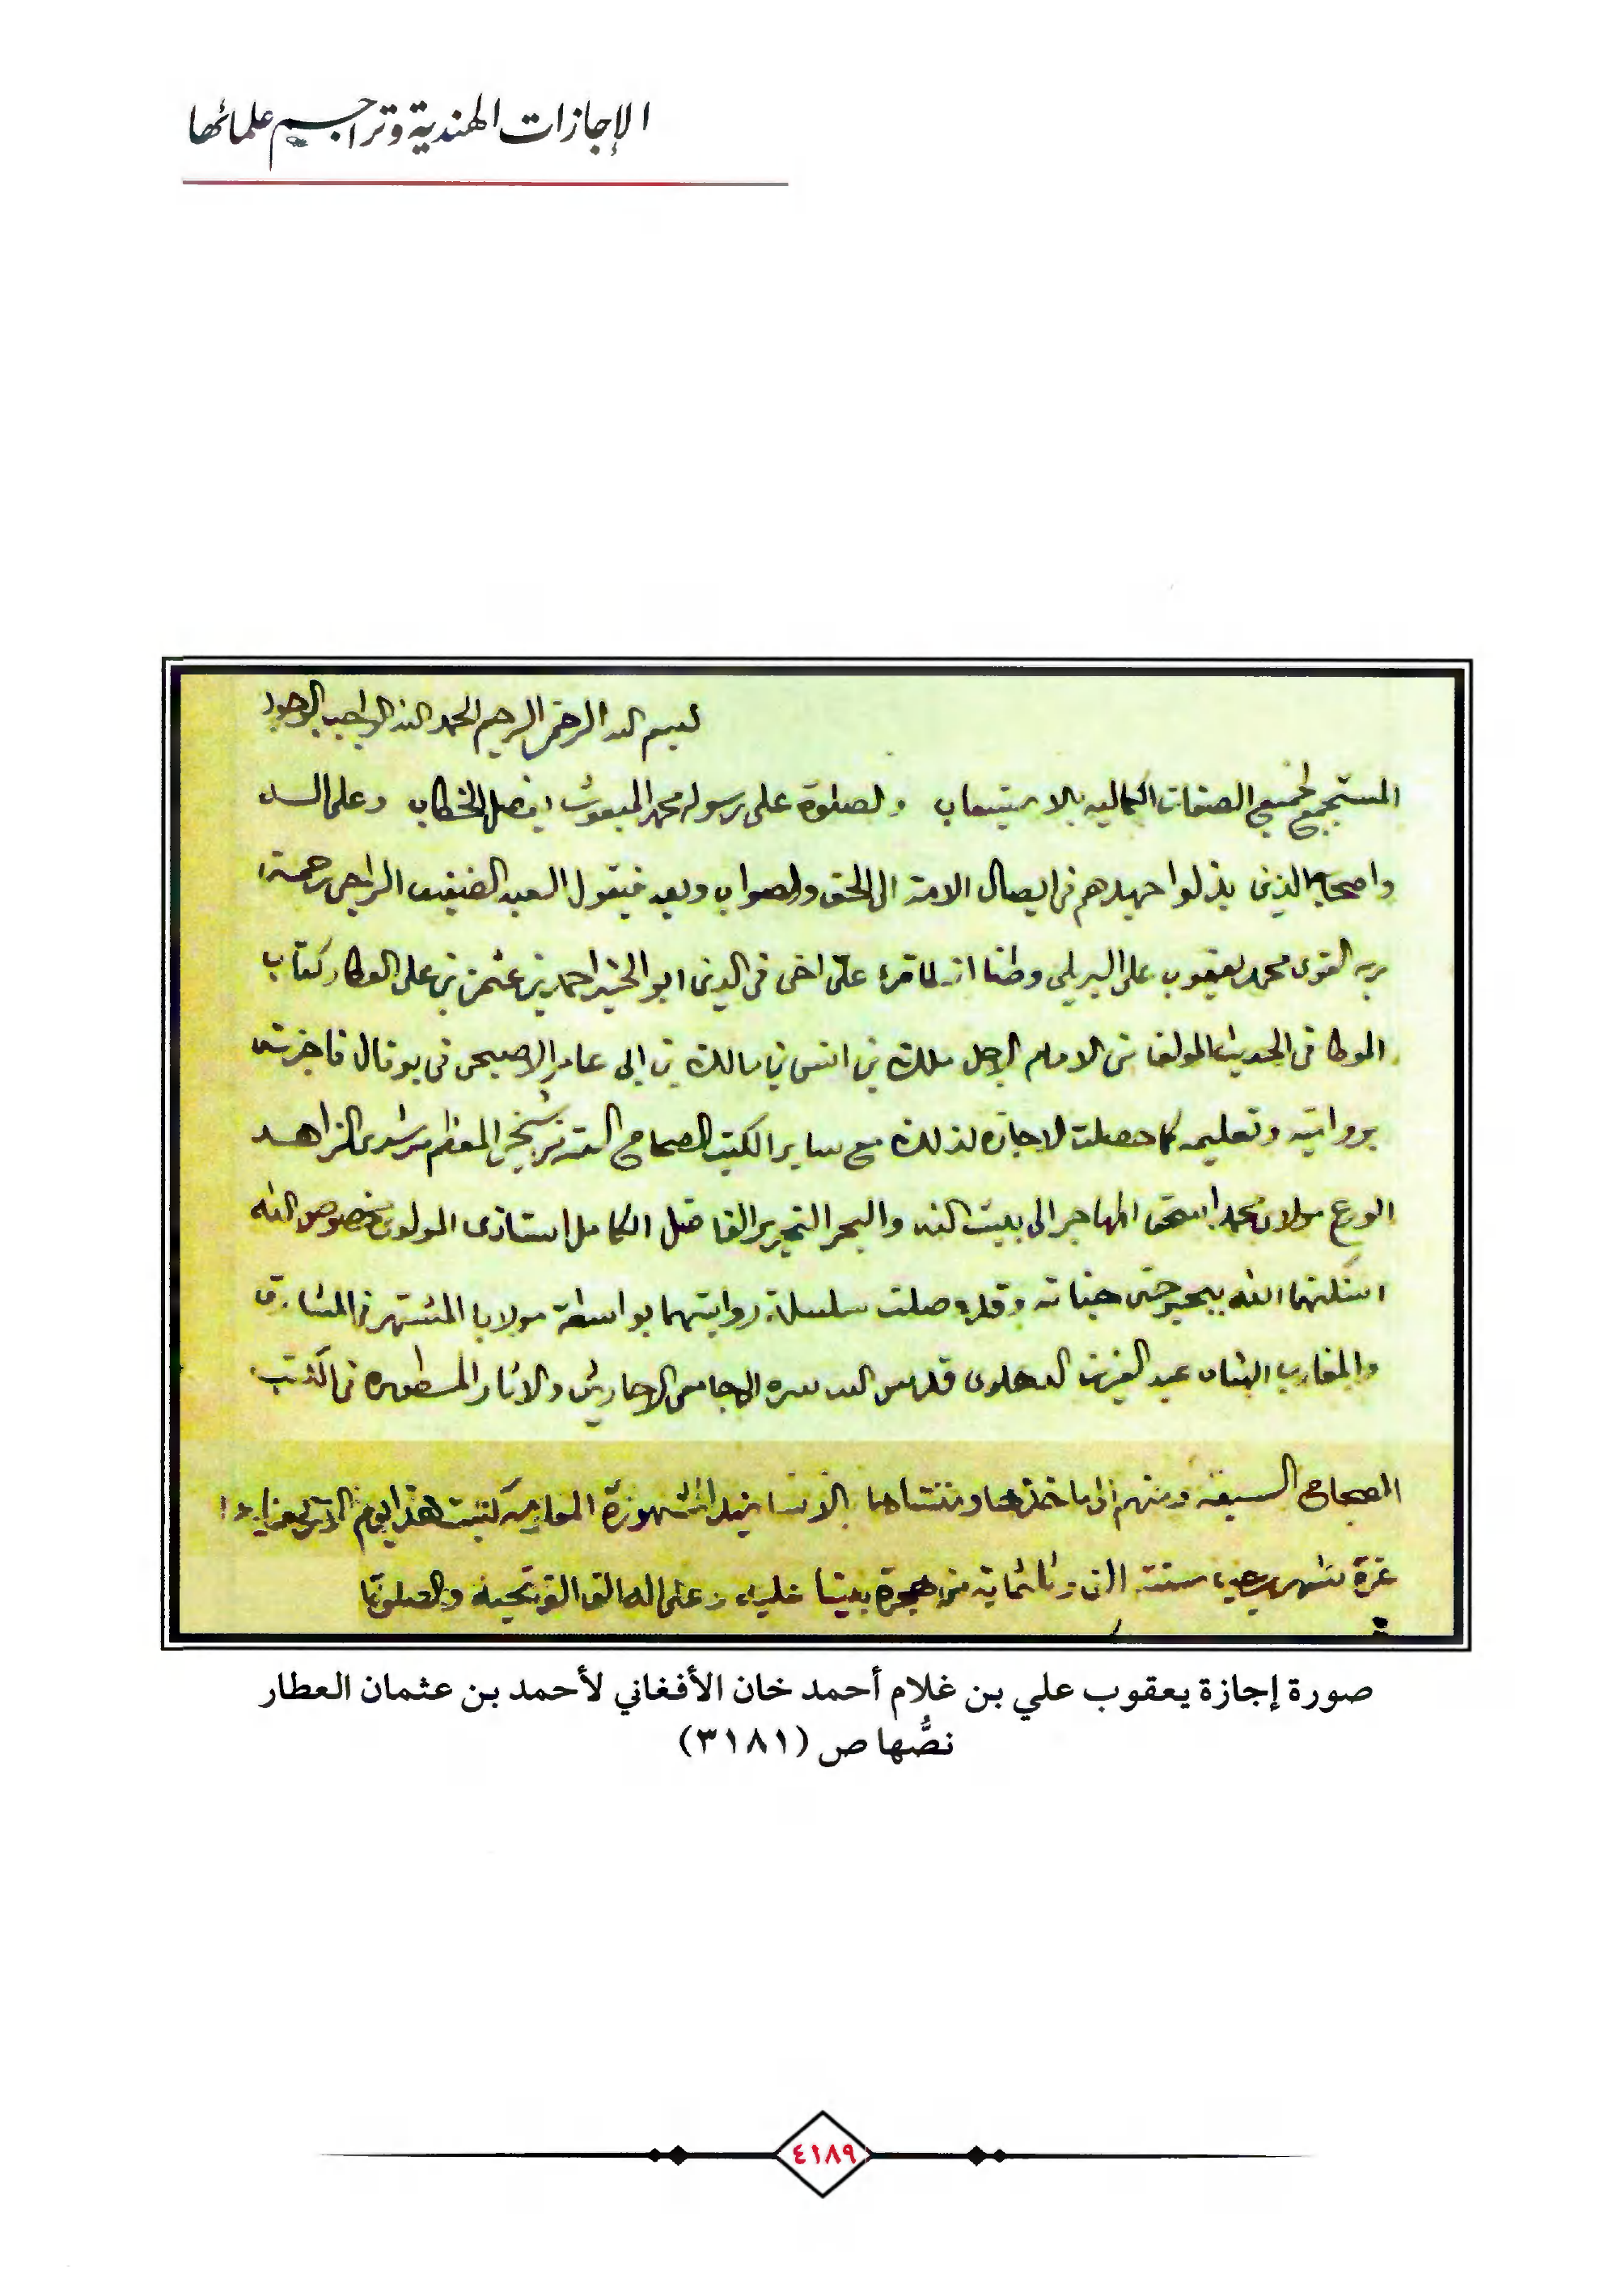 الإجازات الهندية وتراجيم علمائها
بسم الله الرحمن الرحيم الحمد لله الواجب الوجود
المستجمع لجميع الصفات الكماليه بالاستيعاب والصلوة على رسوله محمد المبعوث بفصل الخطاب وعلى اله
واصحابه الذين بذلوا جهدهم في ايصال الامة الى الحق والصواب وبعد فيقول العبد الضعيف الراجي رحمة
ربه القوى محمد يعقوب على البريلي وطنا انه لما قرء على اخى فى الدين ابو الخير احمد بن عثمن بن على العطار كتاب
الموطا فى الحديث المولف من الامام الاجل ملك بن انس بن مالك بن ابى عامر الاصبحى فى بوفال فاجزته
بروايته وتعليمه كما حصلت الاجازة لذلك مع ساير الكتب الصحاح الستة من شيخى المعظم مرشدى الزاهد
الورع مولانا محمد اسحق المهاجر الى بيت الله والبحر النحرير الفاضل الكامل استاذى المولوى مخصوص الله
اسكنهما الله بحبوحتى جناته وقد وصلت سلسلة روايتهما بواسطة مولانا المشتهر فى المشارق
والمغارب الشاه عبد العزيز الدهلوى قدس الله سره الى جامعى الاحاديث والاثار المسطوره فى الكتب
الصحاح السبعة ومنهم الى ماخذها ومنتهاها بالاسانيد المشهورة المعلومة كتبت هذا يوم
غرة شهر سنة الف وثلثماية من هجرة نبينا عليه وعلى اله الف الف تحية والصلوة
صورة إجازة يعقوب علي بن غلام أحمد خان الأفغاني لأحمد بن عثمان العطار
نصُّها ص (٣١٨١)
٤١٨٩